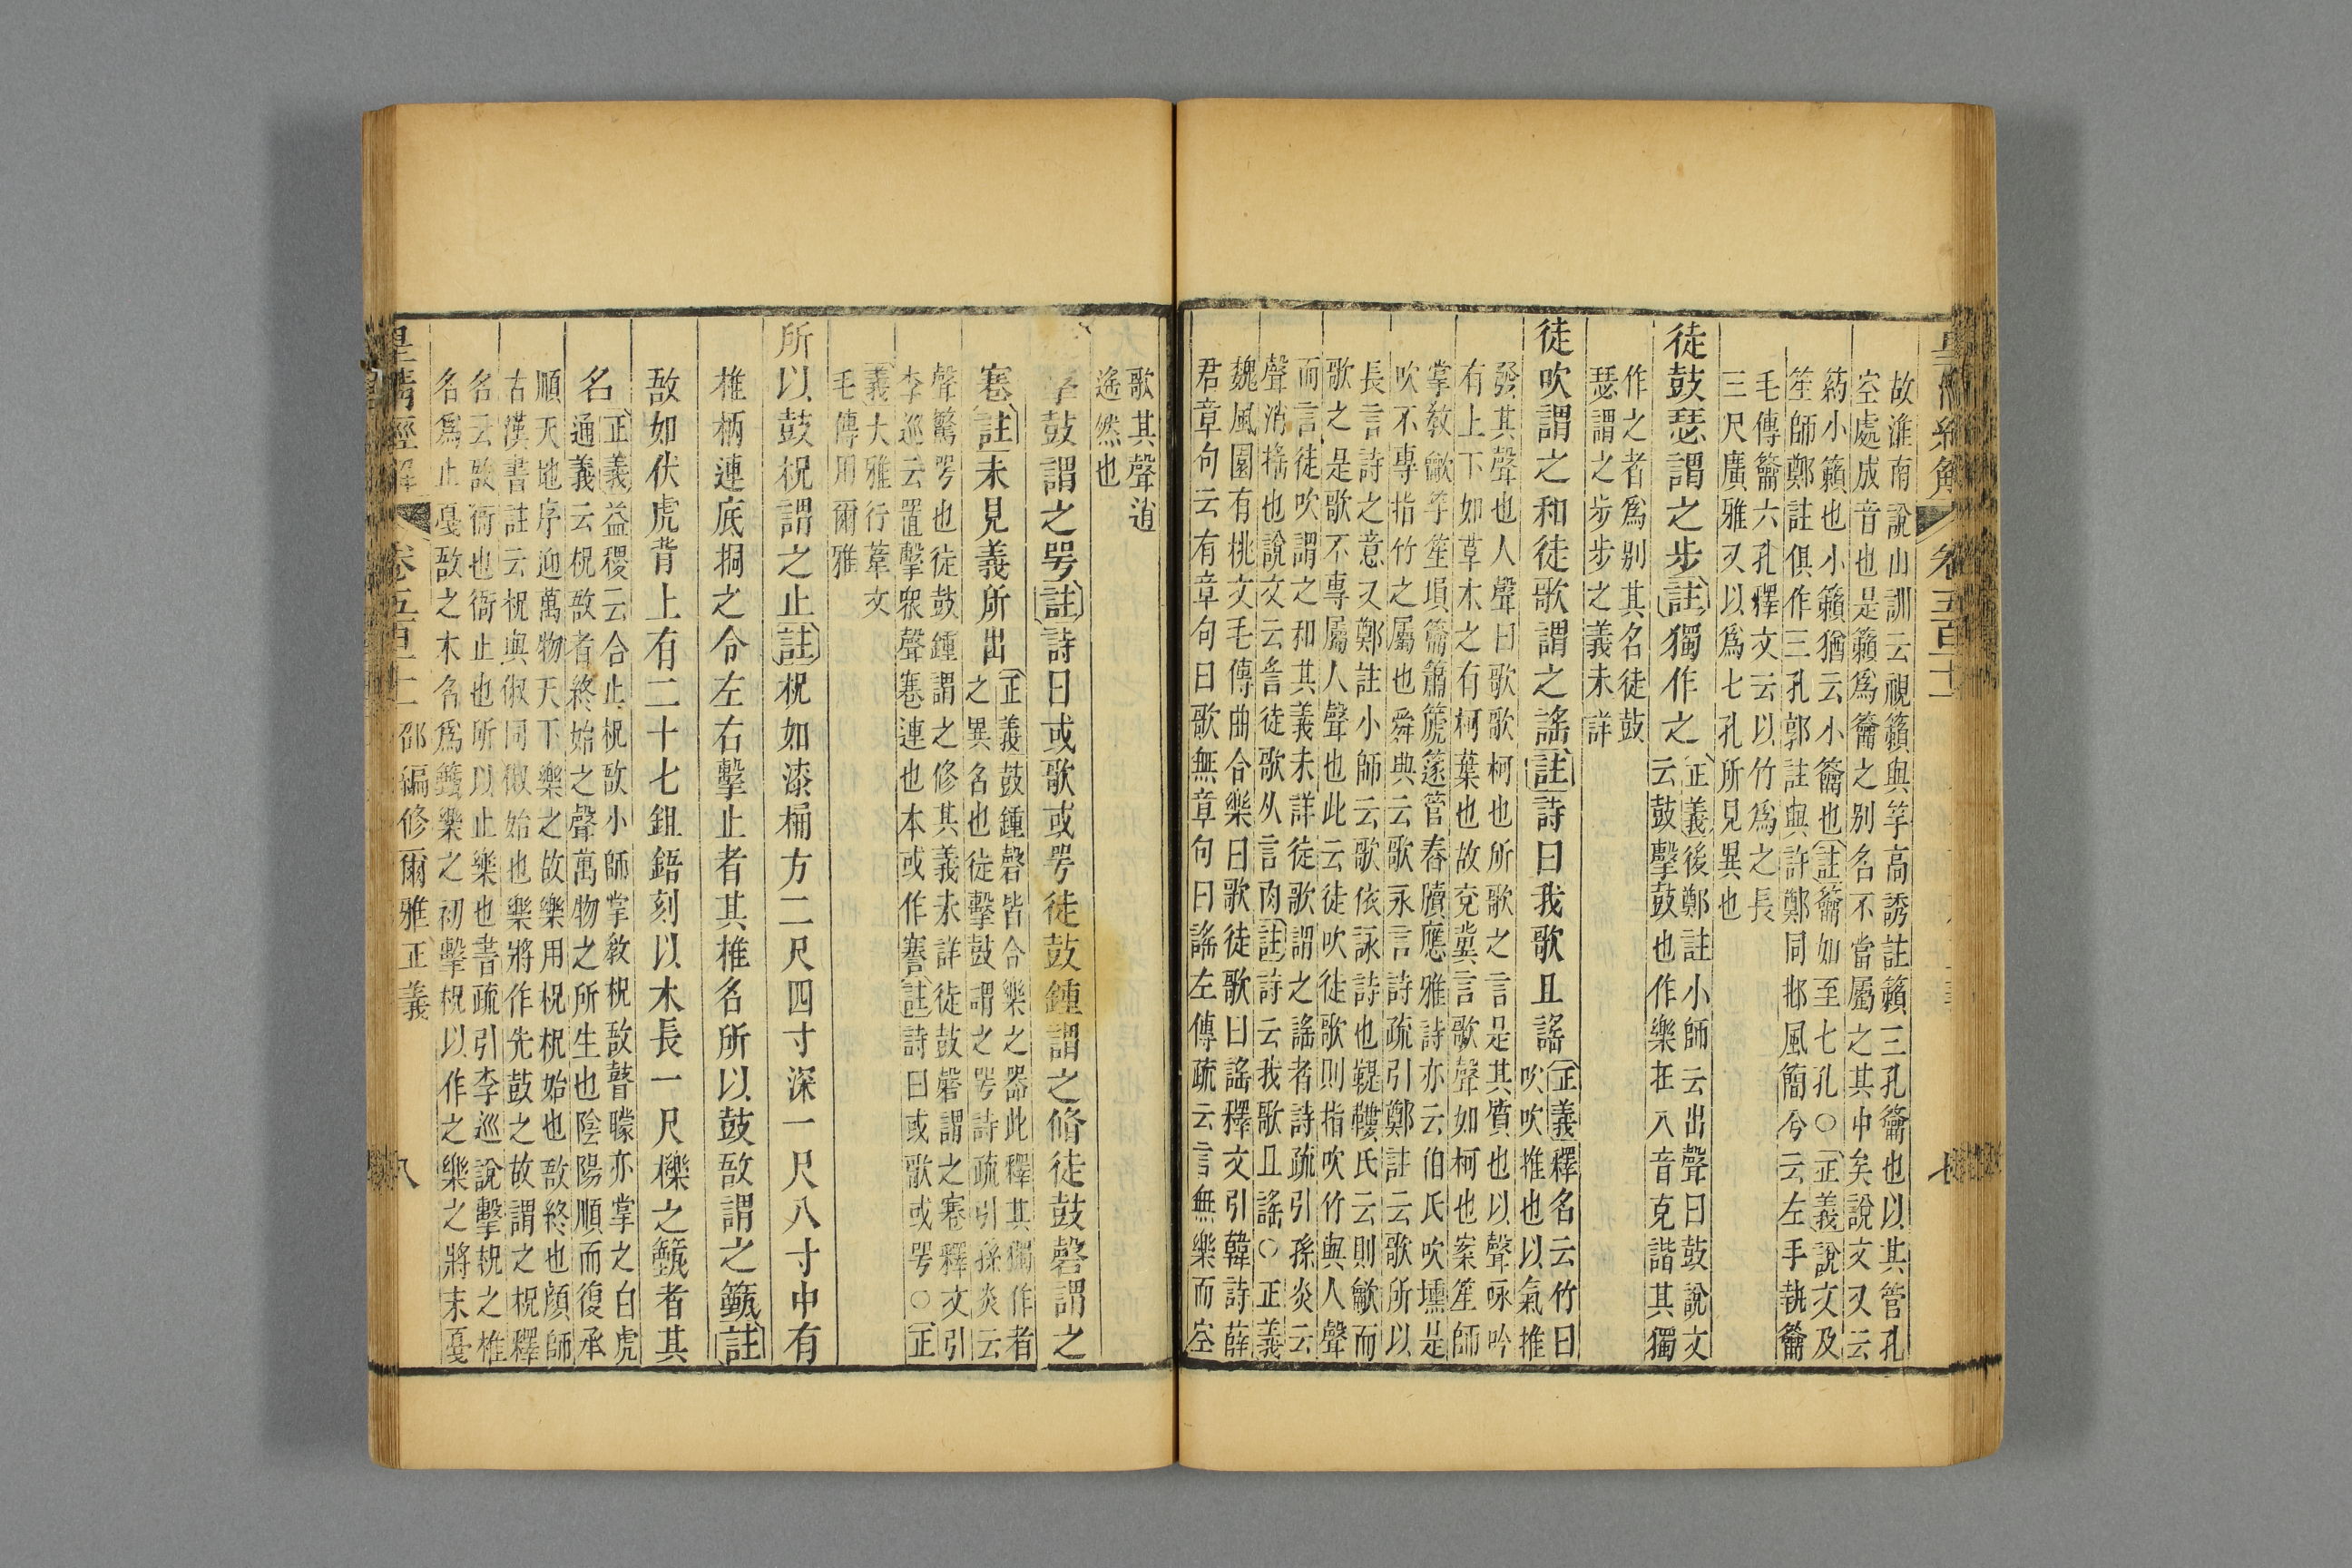 皇清經解 卷五百十二 七
故淮南說山訓云視籟與竽高誘註籟三孔籥也以其管孔
空處成音也是籟爲籥之别名不當屬之其中矣說文又云
䈞小籟也小籟猶云小籥也註籥如至七孔○正義說文及
笙師鄭註俱作三孔郭註與許鄭同邶風簡兮云左手執籥
毛傳籥六孔釋文云以竹爲之長
三尺廣雅又以爲七孔所見異也
徒鼓瑟謂之步註獨作之
正義後鄭註小師云出聲曰鼓說文
云鼓擊鼓也作樂在八音克諧其獨
作之者爲别其名徒鼓
瑟謂之步步之義未詳
徒吹謂之和徒歌謂之謠註詩曰我歌且謠
正義釋名云竹曰
吹吹推也以氣推
發其聲也人聲曰歌歌柯也所歌之言是其質也以聲吟咏
有上下如草木之有柯葉也故兗冀言歌聲如柯也案笙師
掌敎龡竽笙塤籥簫篪篴管舂牘應雅詩亦云伯氏吹壎是
吹不專指竹之屬也舜典云歌永言詩疏引鄭註云歌所以
長言詩之意又鄭註小師云歌依詠詩也鞮鞻氏云則龡而
歌之是歌不專屬人聲也此云徒吹徒歌則指吹竹與人聲
而言徒吹謂之和其義未詳徒歌謂之謠者詩疏引孫炎云
聲消搖也說文云䚻徒歌从言肉註詩云我歌且謠○正義
魏風園有桃文毛傳曲合樂曰歌徒歌曰謠釋文引韓詩薛
君章句云有章句曰歌無章句曰謠左傳疏云言無樂而空
歌其聲逍
遙然也
鼓謂之咢註詩曰或歌或咢徒鼓鍾謂之脩徒鼓磬謂之
寋註未見義所出
正義鼓鍾磬皆合樂之器此釋其獨作者
之異名也徒擊鼓謂之咢詩疏引孫炎云
聲驚咢也徒鼓鍾謂之修其義未詳徒鼓磬謂之寋釋文引
李巡云置擊衆聲寋連也本或作謇註詩曰或歌或咢○正
義大雅行葦文
毛傳用爾雅
所以鼓柷謂之止註柷如漆桶方二尺四寸深一尺八寸中有
椎柄連底挏之令左右擊止者其椎名所以鼓敔謂之籈註
敔如伏虎背上有二十七鉏鋙刻以木長一尺櫟之籈者其
名
正義益稷云合止柷敔小師掌敎柷敔瞽矇亦掌之白虎
通義云柷敔者終始之聲萬物之所生也陰陽順而復承
順天地序迎萬物天下樂之故樂用柷柷始也敔終也顔師
古漢書註云柷與俶同俶始也樂將作先鼓之故謂之柷釋
名云敔衙也衙止也所以止樂也書疏引李巡說擊柷之椎
名爲止戛敔之木名爲籈樂之初擊柷以作之樂之將末戛
皇清經解 卷五百十二 邵編修爾雅正義 八